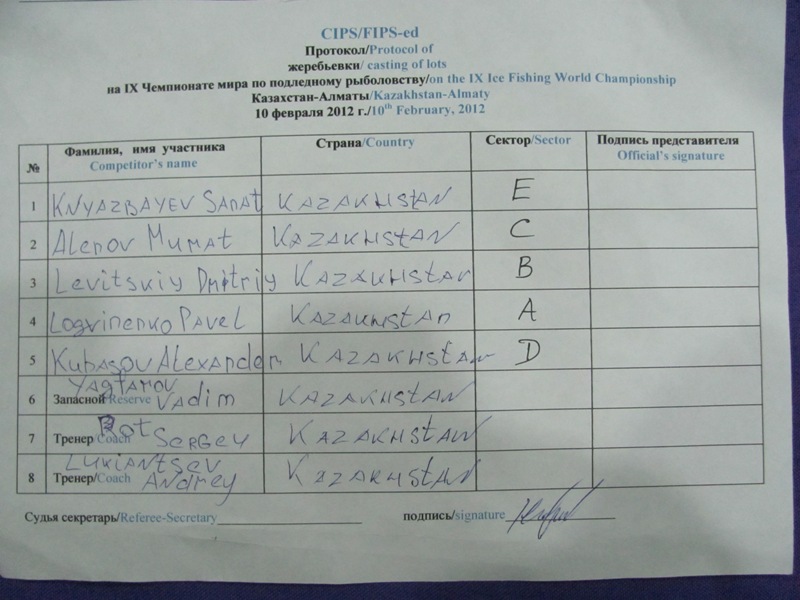 CIPS/FIPS-ed
Протокол/Protocol of
жеребьевки/ casting of lots
на IX Чемпионате мира по подледному рыболовству/on the IX Ice Fishing World Championship
Казахстан-Алматы/Kazakhstan-Almaty
10 февраля 2012 г./10th February, 2012
№ Фамилия, имя участника Страна/Country Сектор/Sector Подпись представителя
Competitor's name Official's signature
1 KNYAZBAYEV SANAT KAZAKHSTAN E
2 Alenov Mumat KAZAKHSTAN C
3 Levitskiy Dmitriy KAZAKHSTAN B
4 Logvinenko Pavel KAZAKHSTAN A
5 Kubasov Alexander KAZAKHSTAN D
Yagfarov
6 Запасной/Reserve Vadim KAZAKHSTAN
Rot
7 Тренер/Coach Sergey KAZAKHSTAN
Lukiantsev
8 Тренер/Coach Andrey KAZAKHSTAN
Судья секретарь/Referee-Secretary подпись/signature